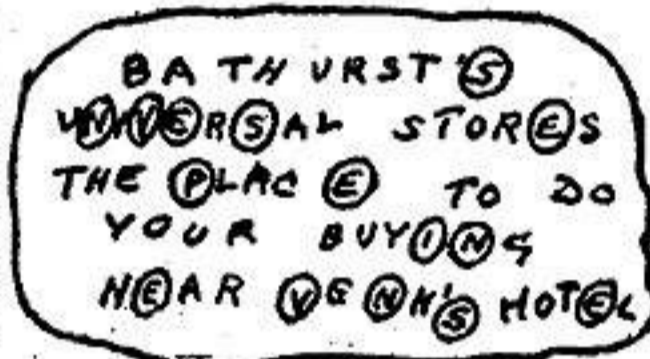 BATHURST'S
UNIVERSAL STORES
THE PLACE TO DO
YOUR BUYING
NEAR VENK'S HOTEL